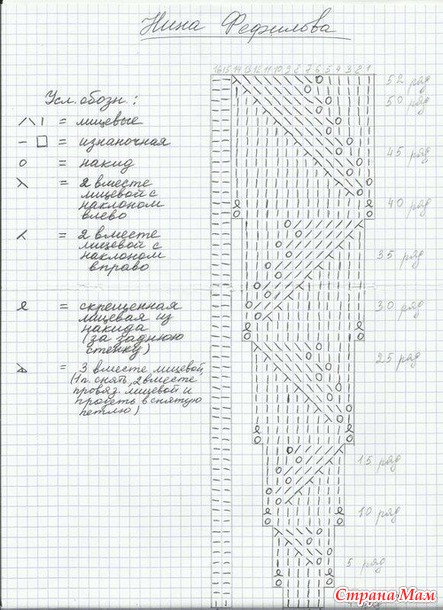 Нина Фефилова
16 15 14 13 12 11 10 9 8 7 6 5 4 3 2 1
52 ряд
50 ряд
45 ряд
40 ряд
35 ряд
30 ряд
25 ряд
15 ряд
10 ряд
5 ряд
Усл. обозн:
= лицевые
= изнаночная
= накид
= 2 вместе
лицевой с
наклоном
влево
= 2 вместе
лицевой с
наклоном
вправо
= скрещенная
лицевая из
накида
(за заднюю
стенку)
= 3 вместе лицевой
(1 п. снять, 2 вместе
провяз. лицевой и
продеть в снятую
петлю)
Страна Мам